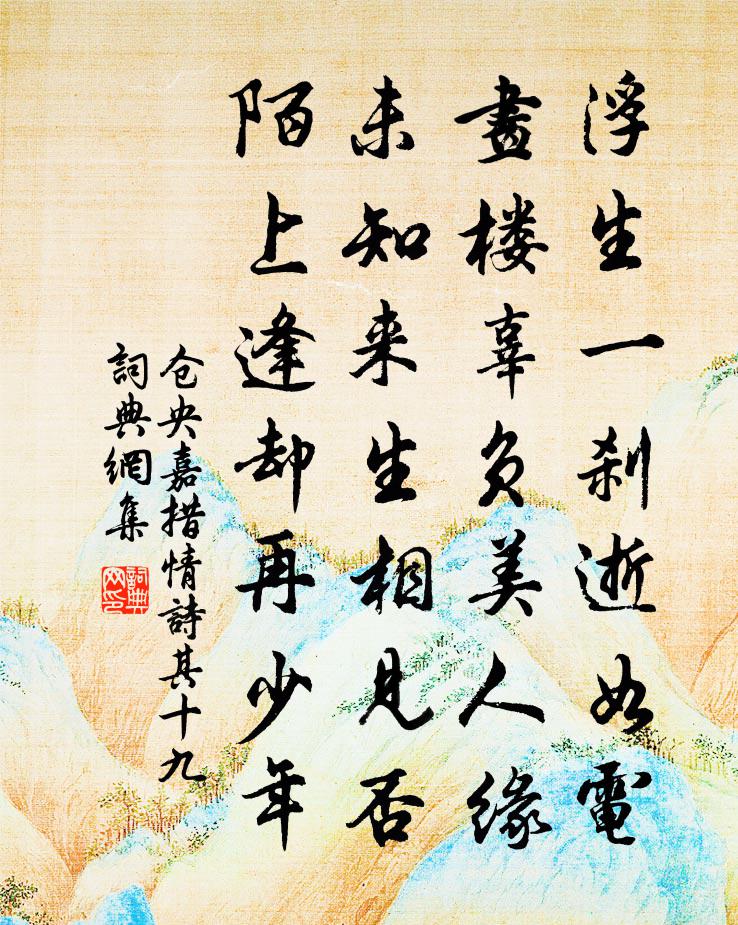 浮生一刹逝如電
畫楼辜負美人緣
未知来生相見否
陌上逢却再少年
仓央嘉措情詩其十九
詞典網集
詞典网印